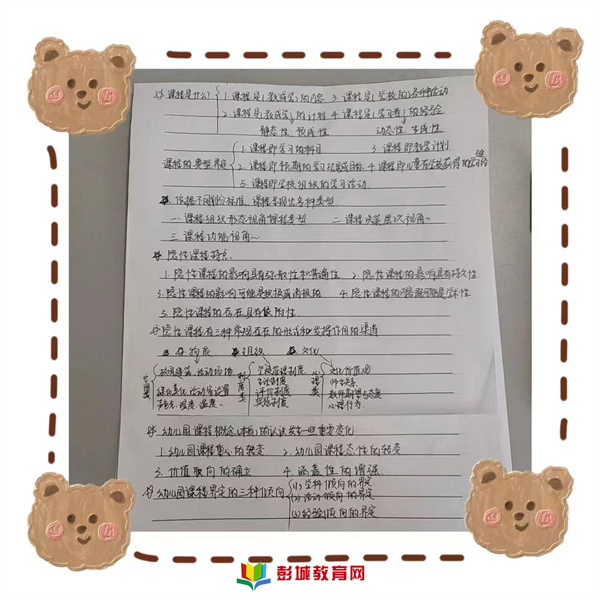 课程是什么? 1.课程是(教或学)的内容 3.课程是(学校的)各种活动
2.课程是(教或学)的计划 4.课程是(学习者)的经验
静态性 预成性 动态性 生成性
课程的典型界定 1.课程即学习的科目 3.课程即教学计划
2.课程即预期的学习结果或目标 4.课程即儿童在学校获得的学习经验
5.课程即学校组织的学习活动
依据不同划分标准,课程呈现出多种类型
一.课程组织形态视角课程类型 二.课程决策层次视角~
三.课程功能视角~
隐性课程特点:
1.隐性课程的影响具有弥散性和普遍性 2.隐性课程的影响具有持久性
3.隐性课程的影响可能是积极或消极的 4.隐性课程的内容既可能是学术性
5.隐性课程的存在具有依附性.
隐性课程有三种常规存在的形式和发挥作用的渠道
物质 组织 文化
活动场地
绿化美化、活动室设置
温度.
制度类
管理制度
生活制度
评价制度
心理类
文化价值观
师生关系.
教师期望与态度
心理行为
幼儿园课程概念(本质)的认识发生一些重要变化
1.幼儿园课程重心的转变 2.幼儿园课程态性的转变
3.价值取向的确立 4.涵盖性的增强.
幼儿园课程界定的三种倾向 (1)学科倾向的界定
(2)活动倾向的界定
(3)经验倾向的界定
彭城教育网